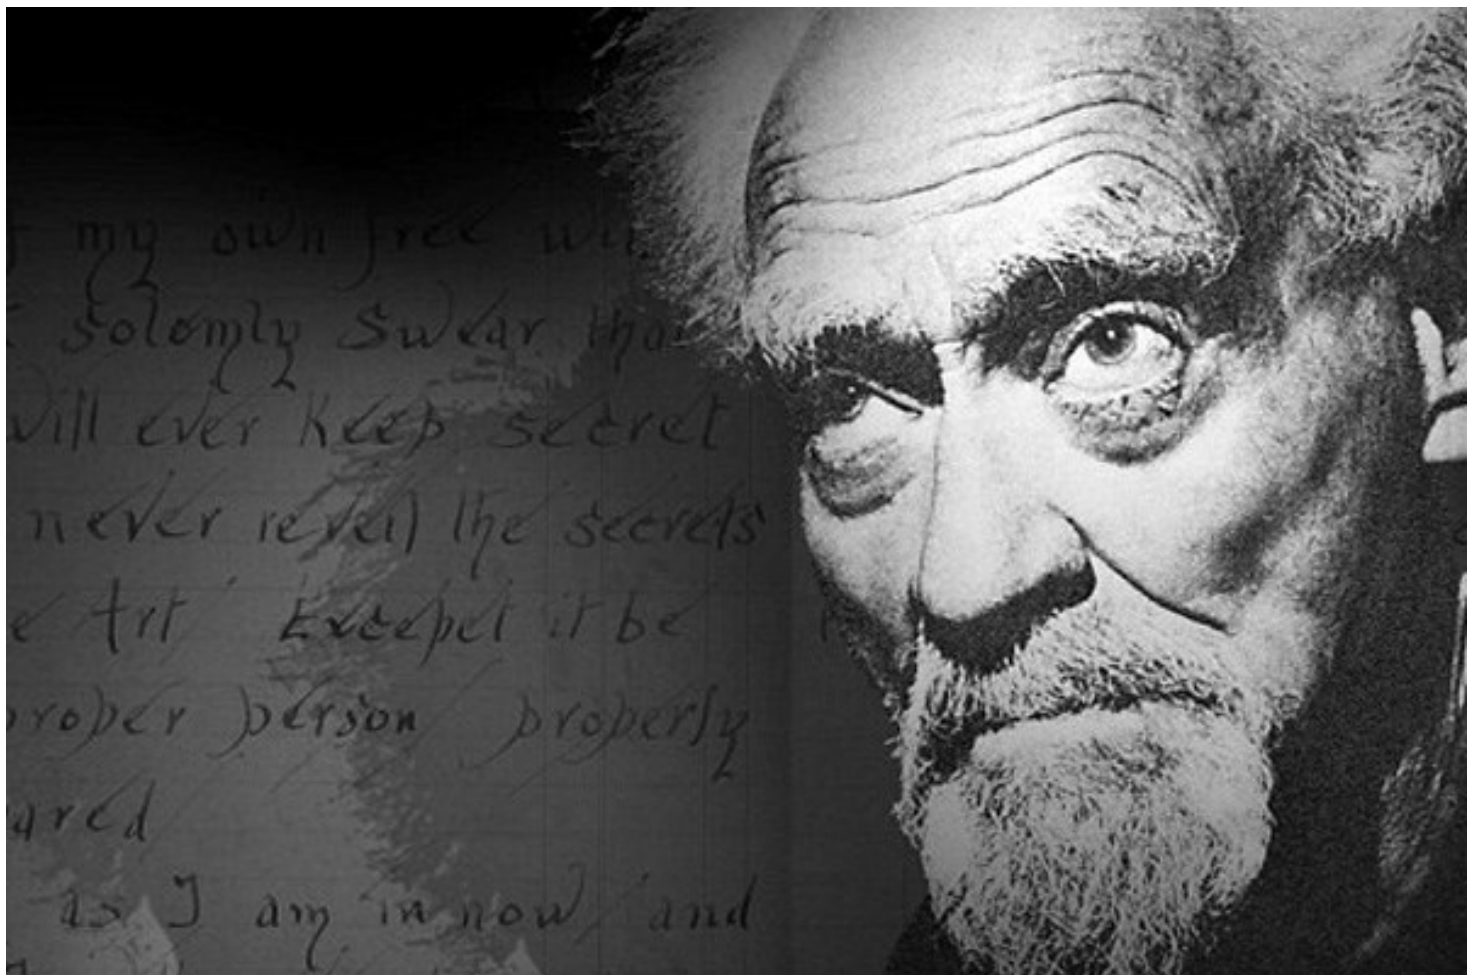 my own free
solomly Swear tha
will ever Keep secret
never reveil the secrets
e Art Excepet it be
proper person properly
ared
as I am in now and